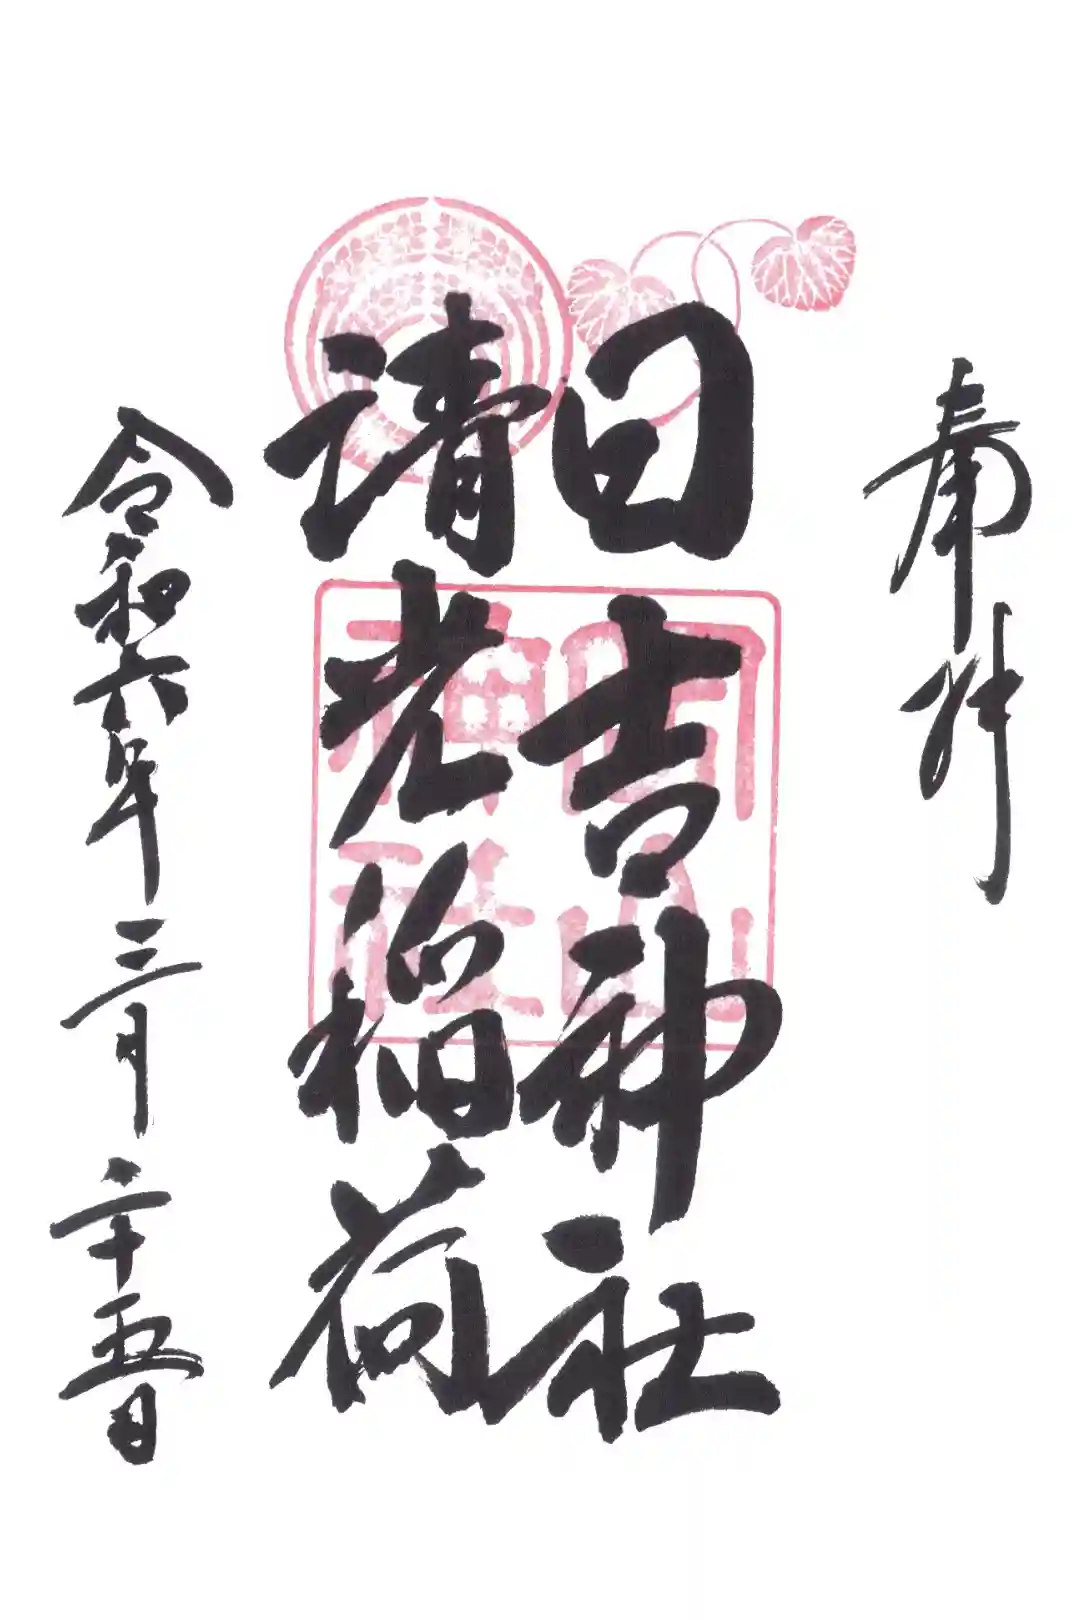 奉拝
日吉神社
清光稲荷
令和六年三月二十五日
山
神社